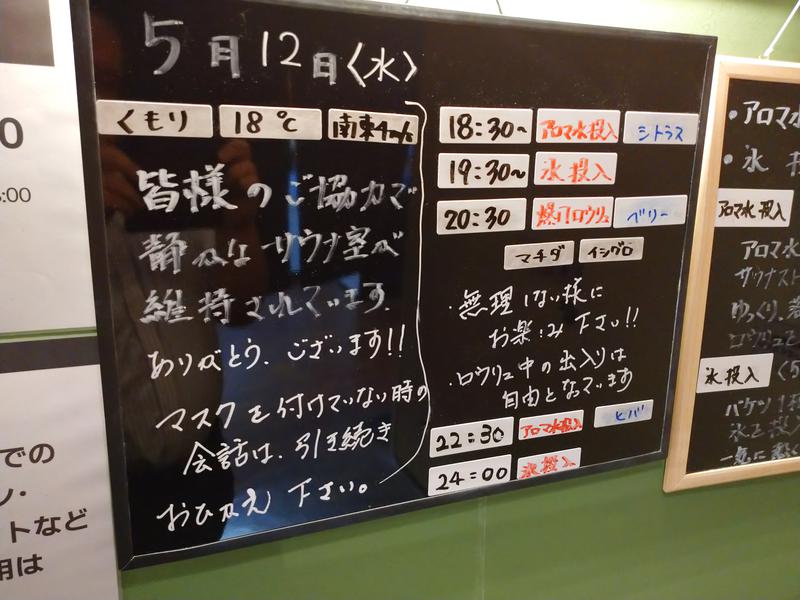 5月12日〈水〉
くもり 18℃ 南東4m/s
皆様のご協力で
静かなサウナ室が
維持されています.
ありがとう、ございます!!
マスクを付けていない時の
会話は、引き続き
おひかえ 下さい。
18:30~ アロマ水投入 シトラス
19:30~ 氷投入
20:30 爆風ロウリュ ベリー
マチダ イシグロ
・無理しない様に
お楽しみ下さい!!
・ロウリュ中の出入りは
自由となっています
22:30 アロマ水投入 ヒバ
24:00 氷投入
・アロマ水
・氷 投
アロマ水投入
アロマ水
サウナスト
ゆっくり、
ロウリュを
氷投入
バケツ1杯
氷を投入
0
:00
での
ン・
ートなど
用は